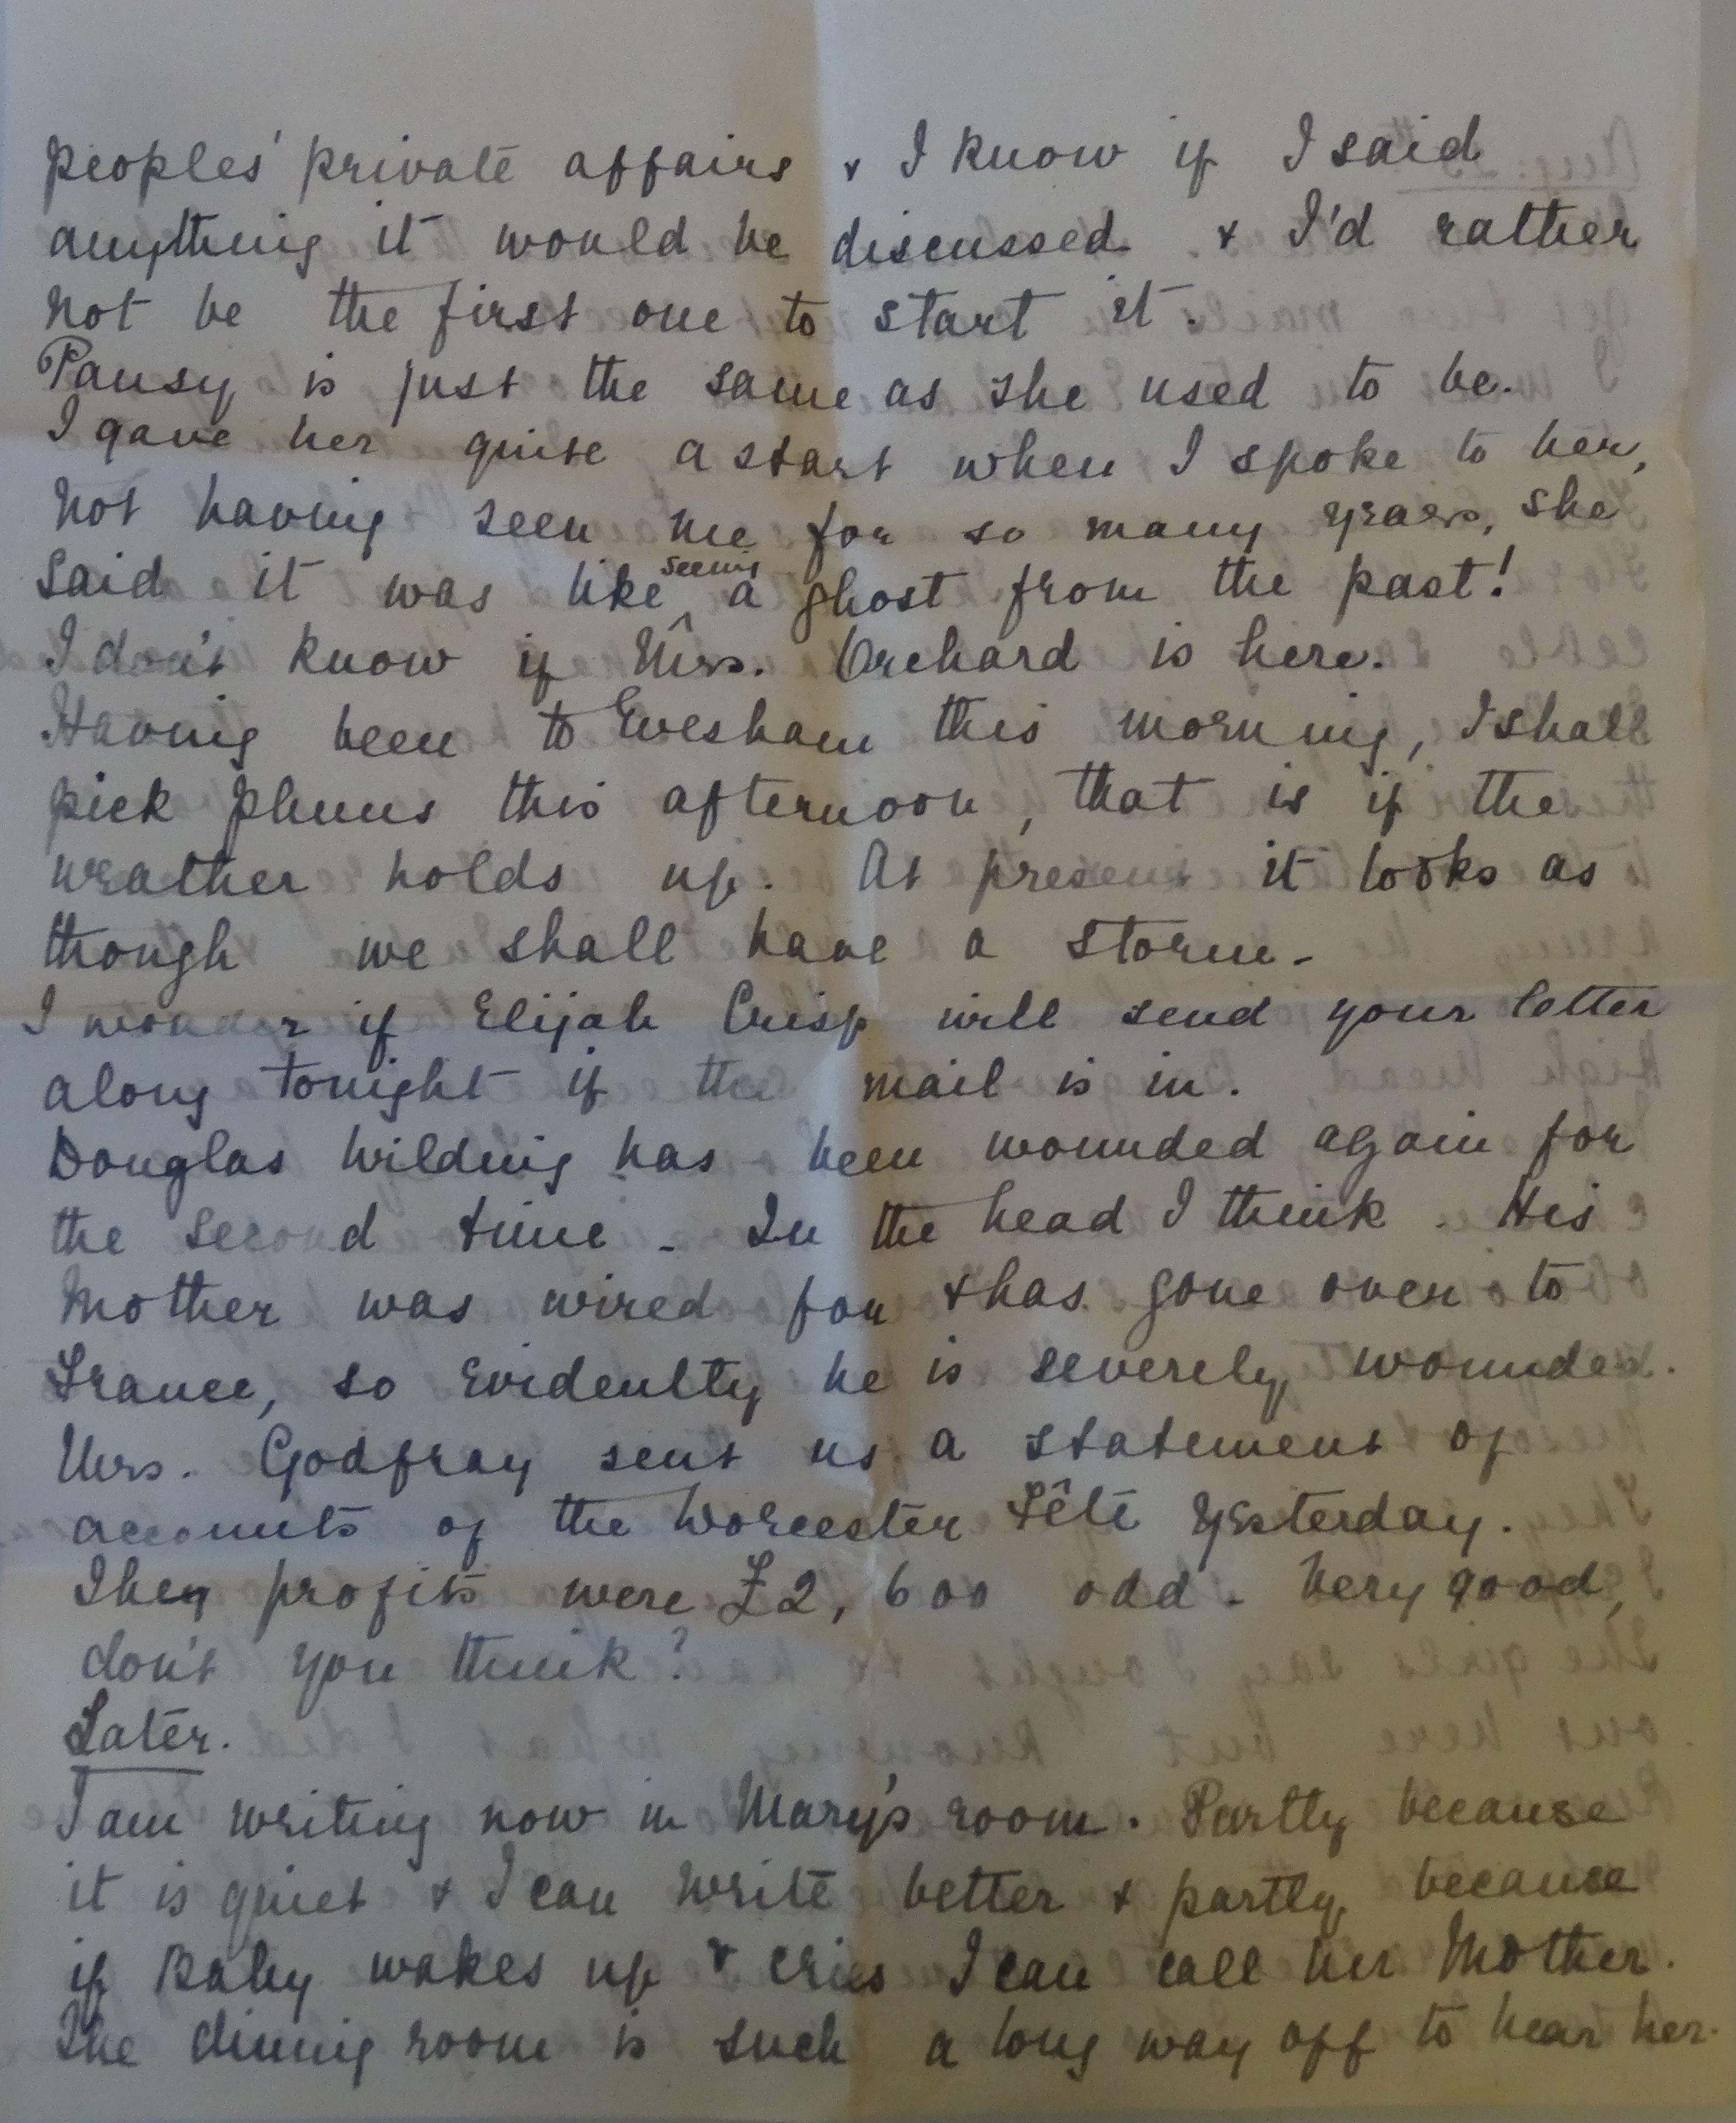 peoples' private affairs & I know if I said
anything it would be discussed & I'd rather
not be the first one to start it.
Pansy is just the same as she used to be.
I gave her quite a start when I spoke to her,
not having seen me for so many years, she
said it was like seeing a ghost from the past!
I don't know if Mrs. Orchard is here.
Having been to Evesham this morning, I shall
pick plums this afternoon, that is if the
weather holds up. At present it looks as
though we shall have a storm.
I wonder if Elijah Crisp will send your letter
along tonight if the mail is in.
Douglas Wilding has been wounded again for
the second time. In the head I think. His
Mother was wired for & has gone over to
France, so evidently he is severely wounded.
Mrs. Godfray sent us a statement of
accounts of the Worcester Fête yesterday.
They profits were £2,600 odd. Very good,
don't you think?
Later.
I am writing now in Mary's room. Partly because
it is quiet & I can write better & partly because
if Baby wakes up & cries I can call her Mother.
The dining room is such a long way off to hear her.